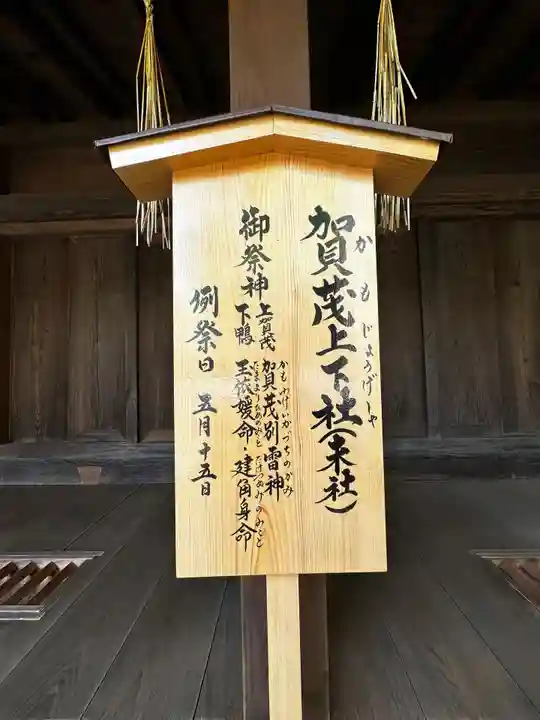 賀茂上下社(末社)
かもじょうげしゃ
御祭神
上賀茂 賀茂別雷神
かもわけいかづちのかみ
下鴨 玉依媛命・建角身命
たまよりひめのみこと たけつぬみのみこと
例祭日 五月十五日